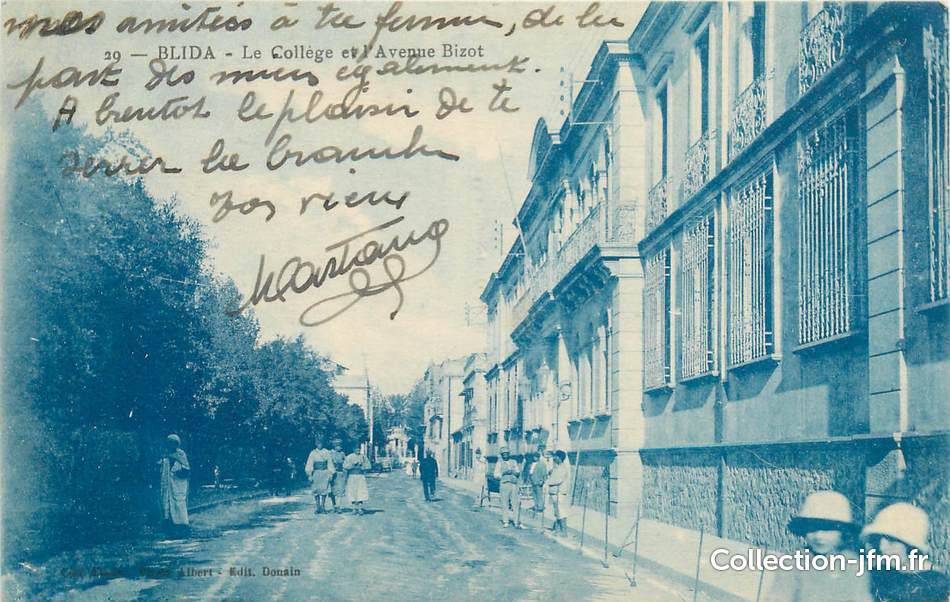 mes amitiés à ta femme, de la
29 — BLIDA - Le Collège et l'Avenue Bizot
part des miens également.
A bientot le plaisir de te
serrer la
vieux
Albert - Edit. Donain
Collection-jfm.fr